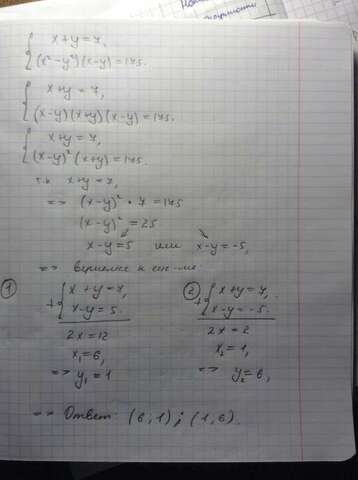 x+y=7,
(x²-y²)(x-y)=175.
x+y=7,
(x-y)(x+y)(x-y)=175.
x+y=7,
(x-y)²(x+y)=175.
т.к. x+y=7,
=> (x-y)² • 7 = 175
(x-y)² = 25
x-y=5 или x-y=-5,
=> вернёмся к сис-ме
① + x+y=7, ② + x+y=7,
x-y=5. x-y=-5.
2x=12 2x=2
x₁=6, x₂=1,
=> y₁=1 => y₂=6,
=> Ответ: (6,1); (1,6).